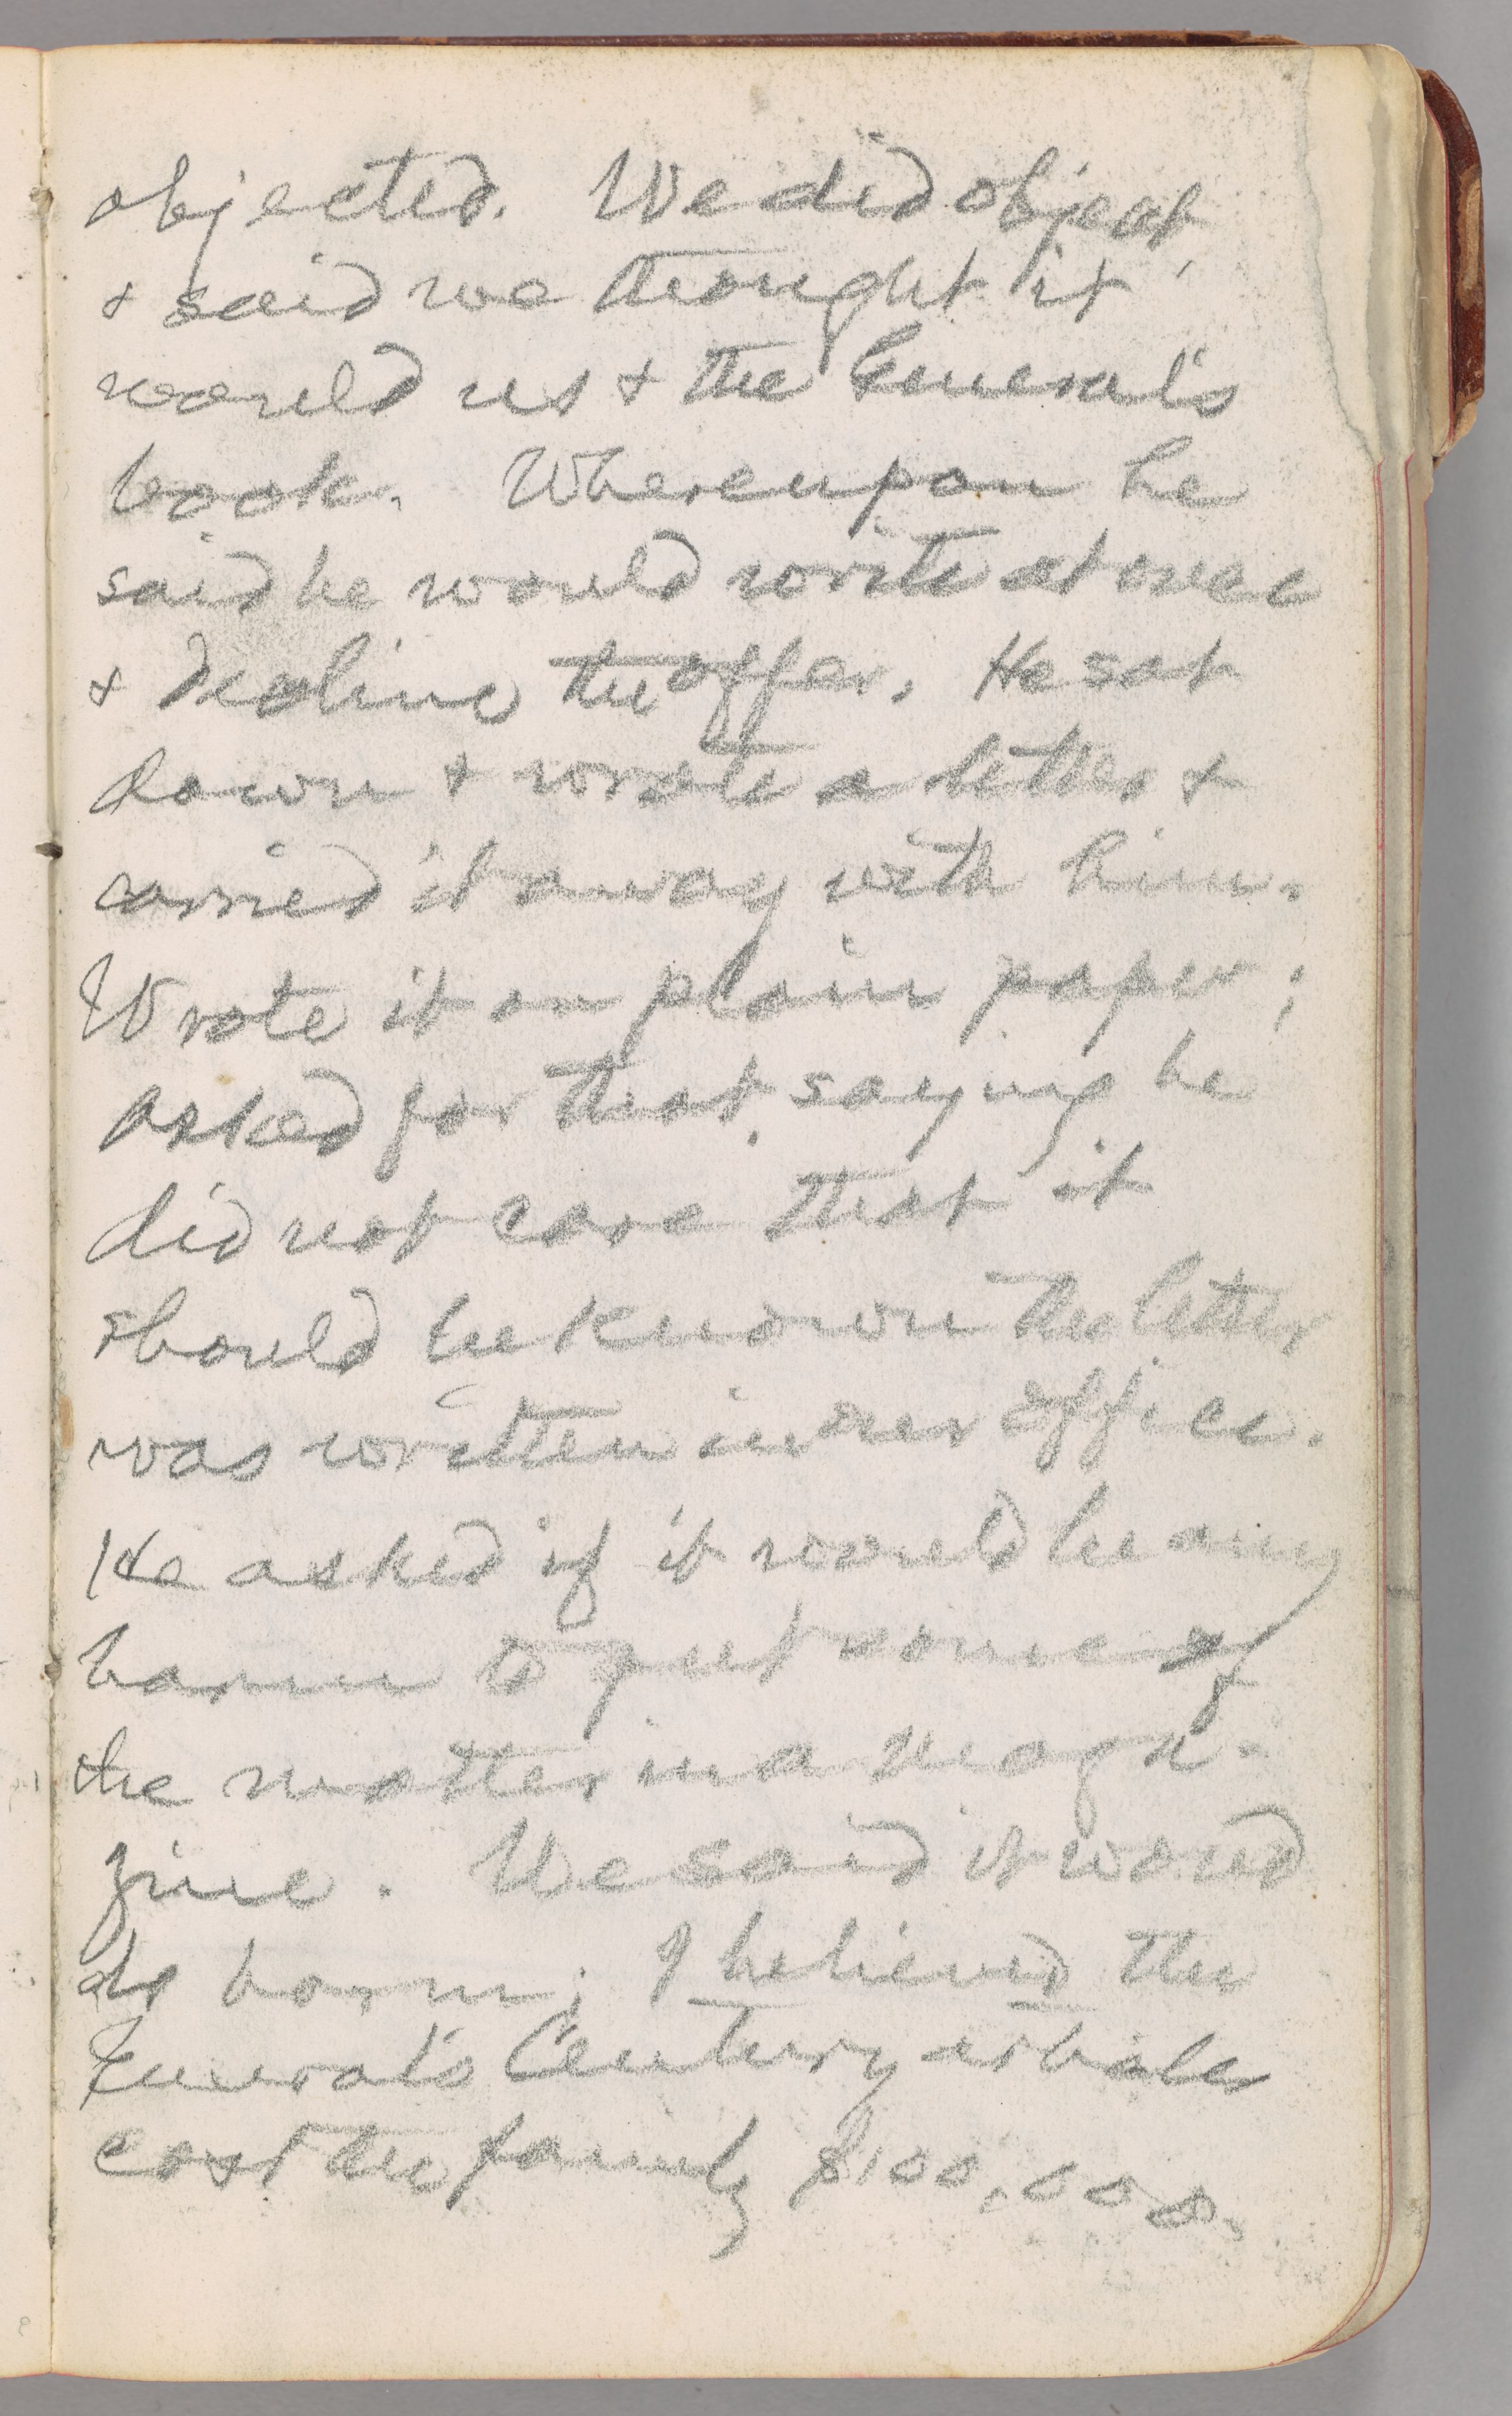 objected. We did object,
& said we thought it
would us & the General's
book. Whereupon he
said he would write at once
& decline the offer. He sat
down & wrote a letter &
carried it away with him.
Wrote it on plain paper;
asked for that, saying he
did not care that it
should be known the letter
was written in our office.
He asked if it would be any
harm to put some of
the matter in a maga-
zine. We said it would
do harm; I believed the
General's Century articles
cost the family $100,000.